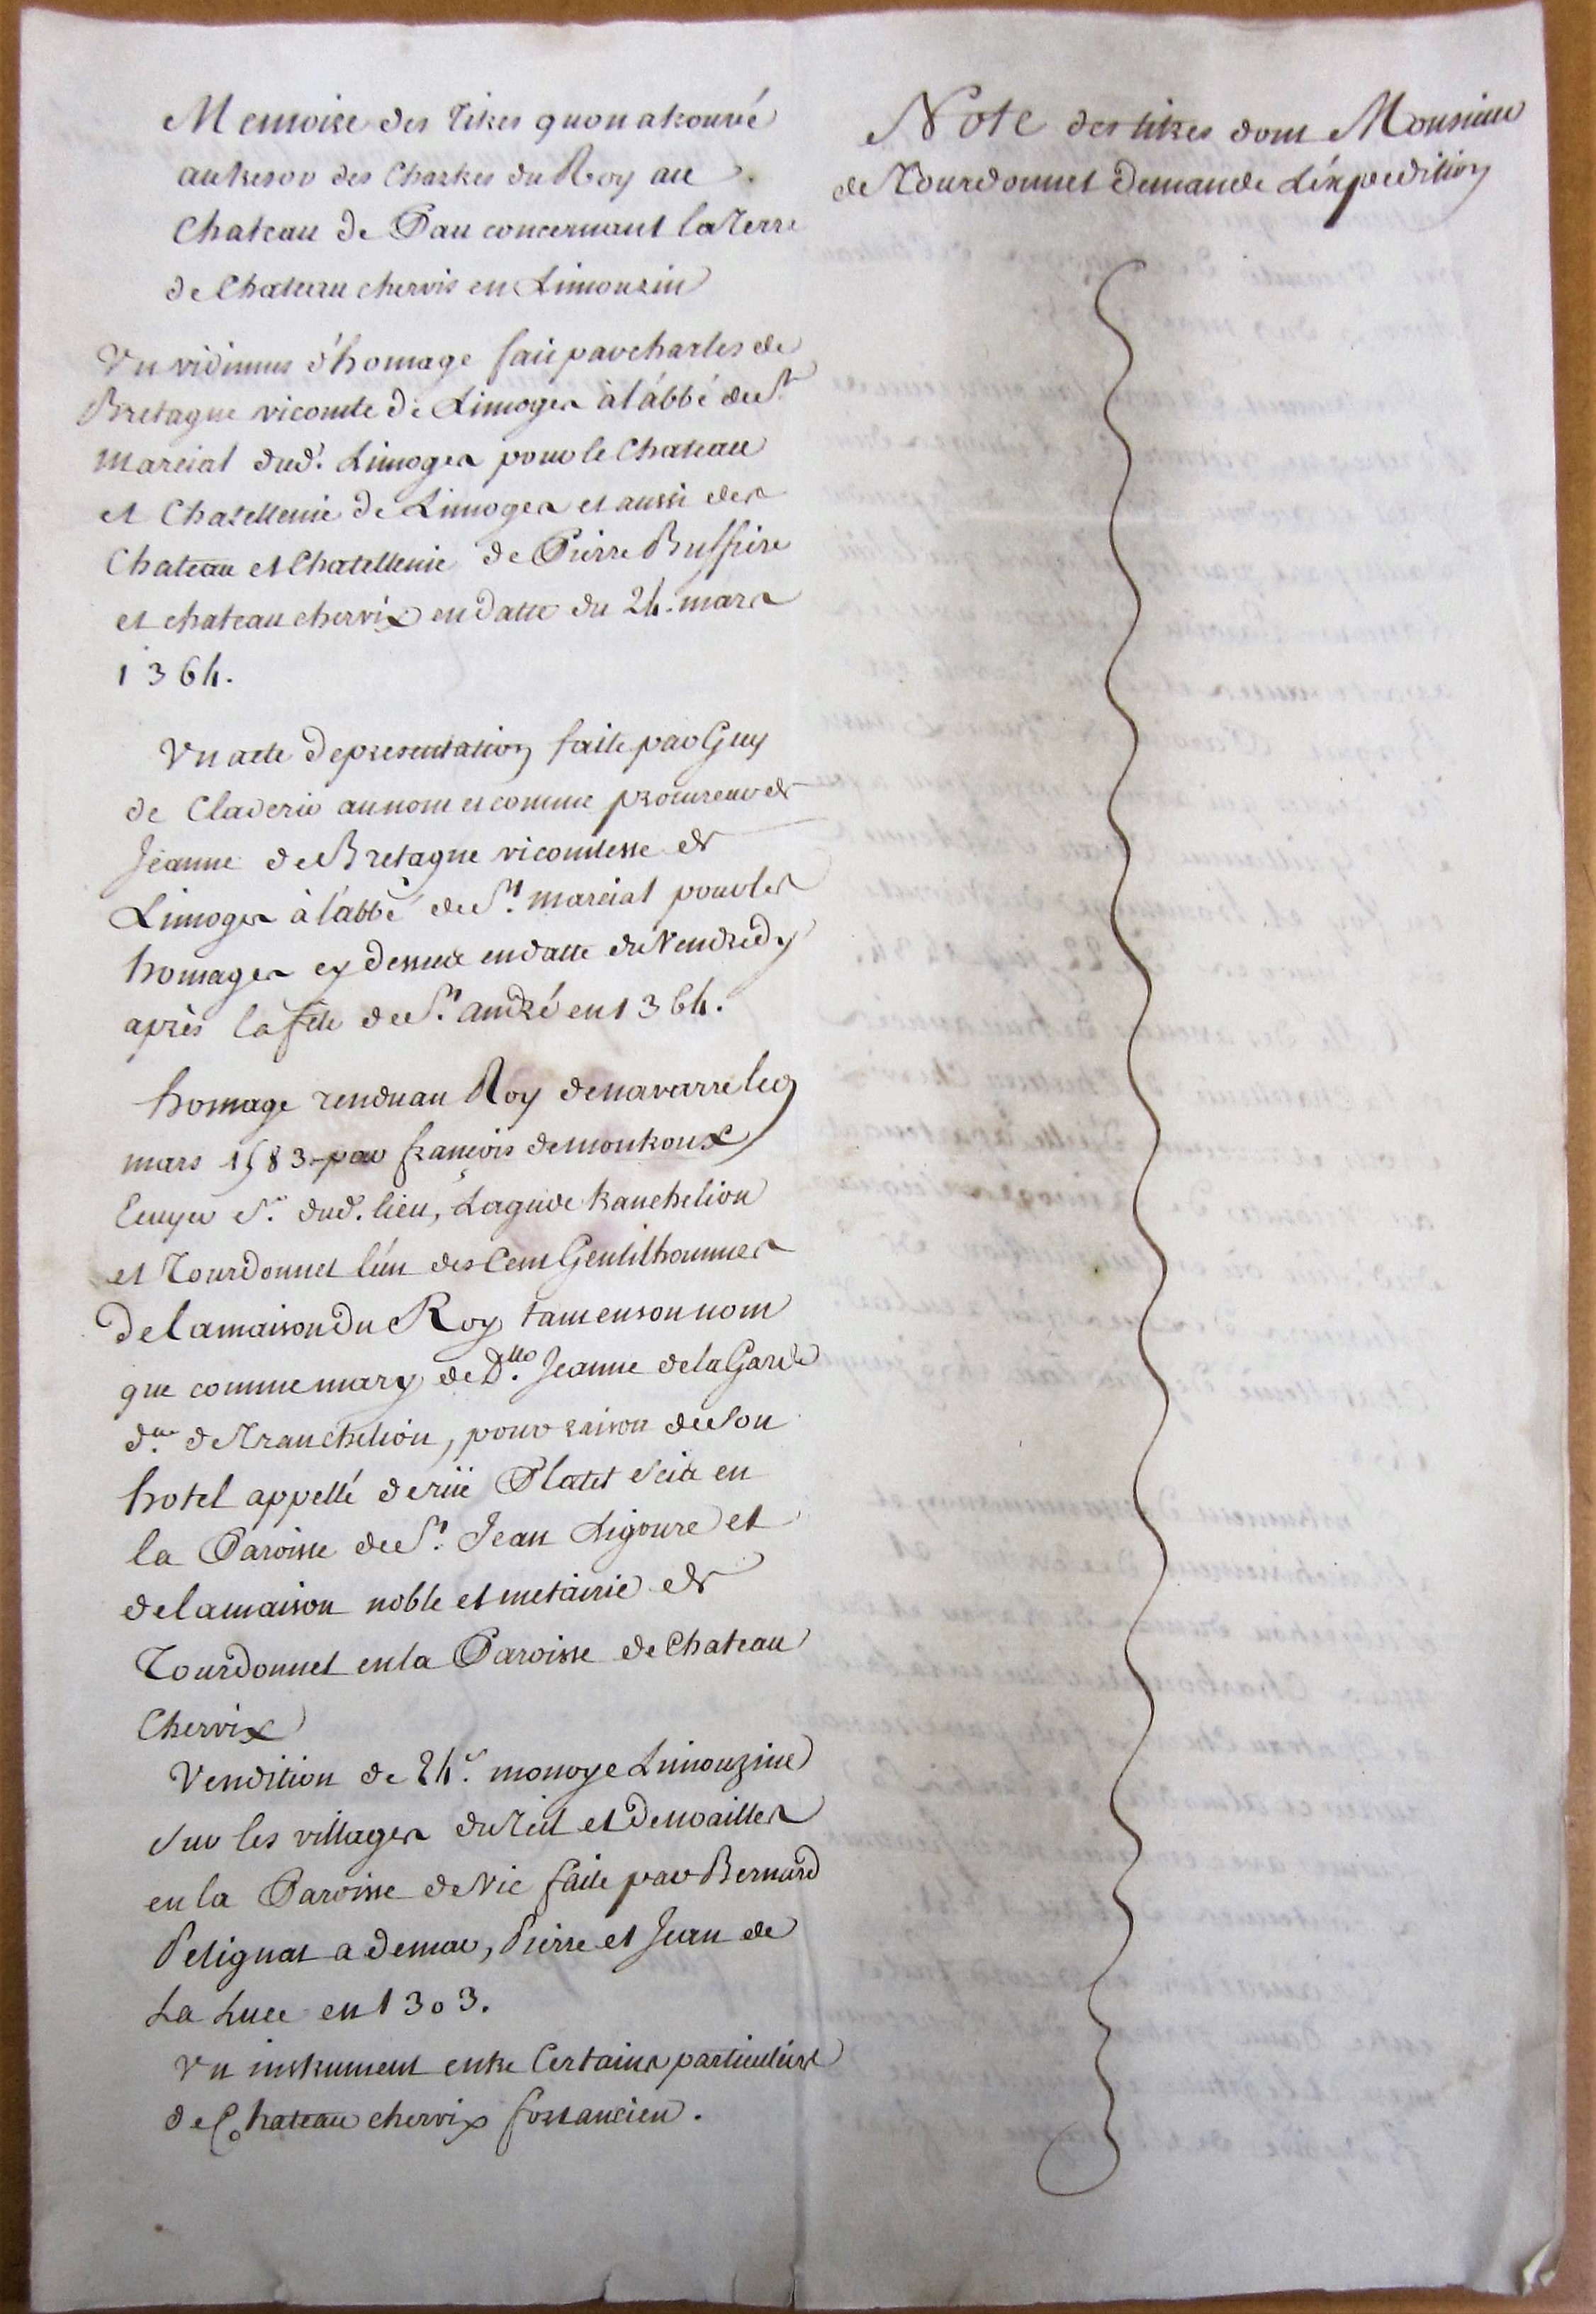 Memoire des titres quon a trouvé
au tresor des Chartres du Roy au
Chateau de Pau concernant la Terre
de Chateau chervix en Limouzin
Un vidimus d'homage fait par charles de
Bretagne vicomte de Limoges à l'abbé de St
Marcial dud. Limoges pour le Chateau
et Chatellenie de Limoges et aussi des
Chateau et Chatellenie de Pierre Buffiere
et chateau chervix en datte du 24. mars
1364.
Un acte de presentation faite par Guy
de Claderie au nom et comme procureur de
Jeanne de Bretagne vicomtesse de
Limoges à l'abbé de St. marcial pour les
homages cy dessus en datte du Vendredy
après la fête de St. andré en 1364.
homage rendu au Roy de navarre le 9
mars 1583 par françois de montroux
Ecuyer Sr. dud. lieu, Lagarde tranchelion
et Tourdonnet l'un des Cent Gentilhommes
de la maison du Roy tant en son nom
que comme mary de Dlle. Jeanne de la Garde
de. de Tranchelion, pour raison de son
hotel appellé de rüe Platet scitt en
la Paroisse de St. Jean Ligoure et
de la maison noble et metairie de
Tourdonnet en la Paroisse de Chateau
Chervix
Vendition de 24s. monoye Limouzine
Sur les villages du Teil et de noailles
en la Paroisse de Vic faite par Bernard
Petignat a demar, Pierre et Jean de
La Luce en 1303.
Un instrument entre Certains particuliers
de Chateau chervix fort ancien.
Note des titres dont Monsieur
de Tourdonnet demande L'éxpedition